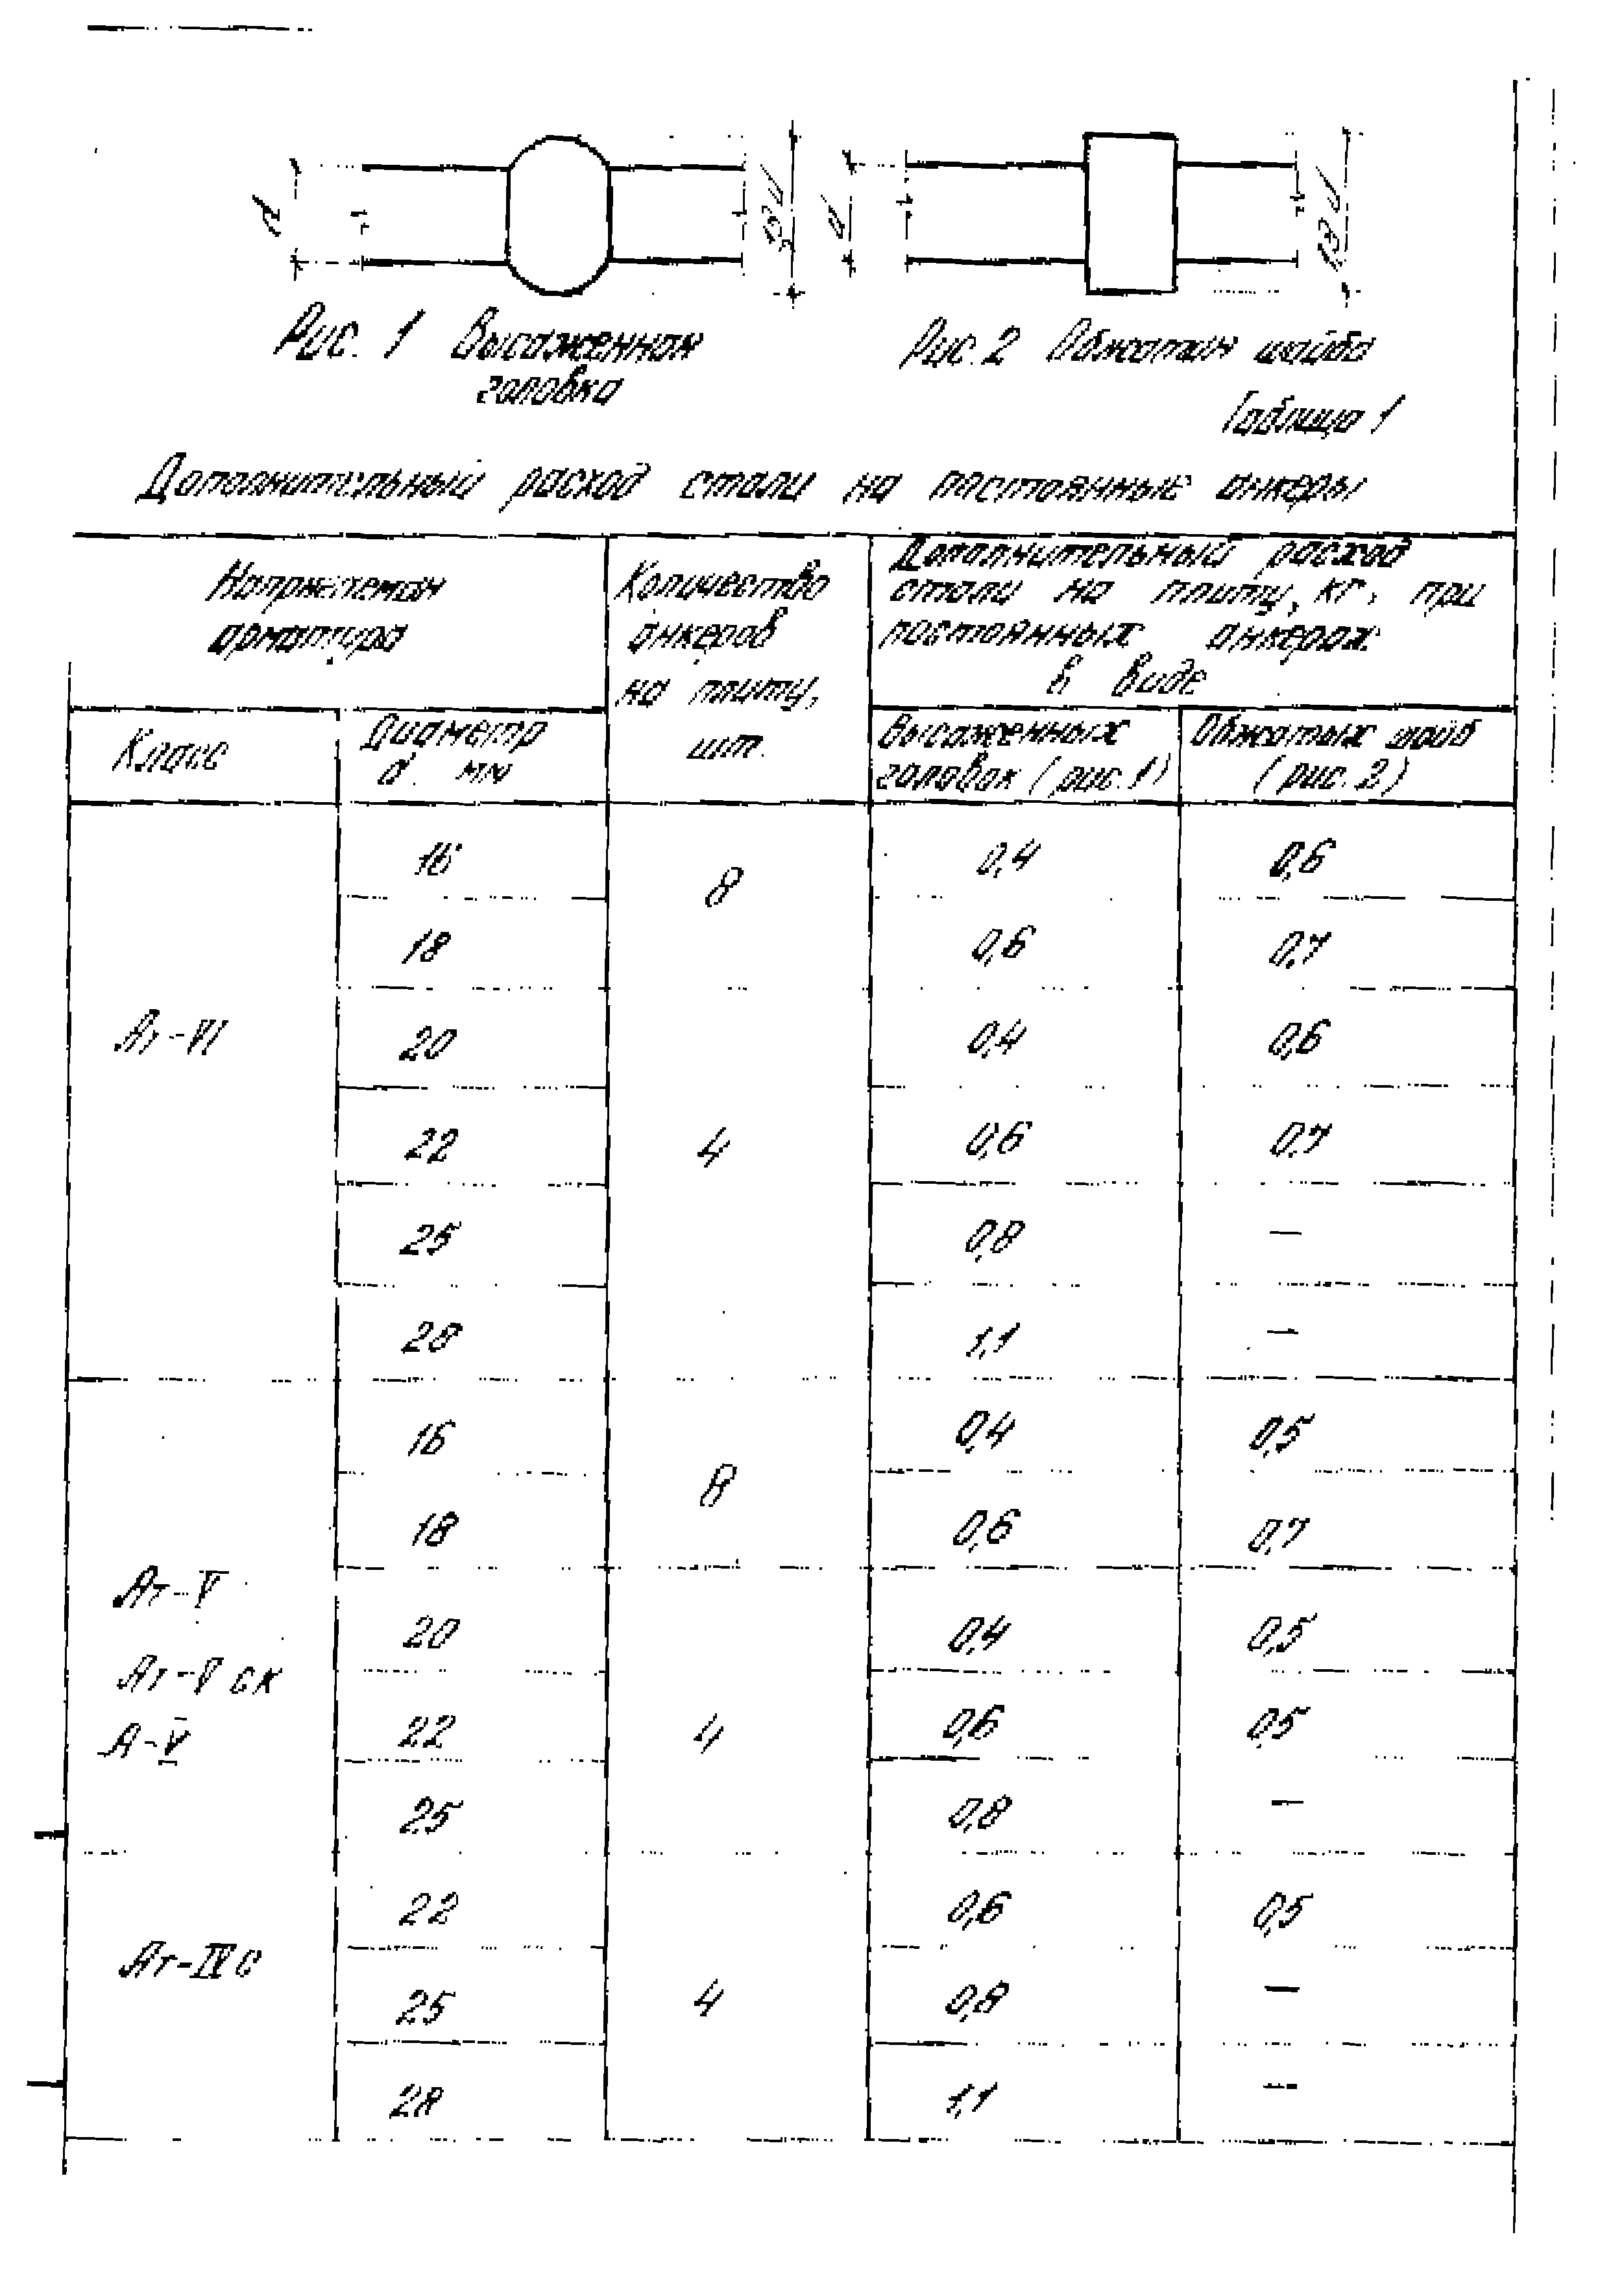 d
d
Рис. 1 Высаженная
головка
Рис. 2 Обжатая шайба
Таблица 1
Дополнительный расход стали на постоянные анкеры
Напрягаемая
арматура
Количество
анкеров
на плиту,
шт.
Дополнительный расход
стали на плиту, кг, при
постоянных анкерах
в виде
Класс
Диаметр
d, мм
Высаженных
головок (рис. 1)
Обжатых шайб
(рис. 2)
Ат-VI
16 8 0,4 0,6
18 0,6 0,7
20 0,4 0,6
22 4 0,6 0,7
25 0,8 —
28 1,1 —
Ат-V
Ат-V ск
А-V
16 8 0,4 0,5
18 0,6 0,7
20 0,4 0,5
22 4 0,6 0,5
25 0,8 —
Ат-IVС
22 0,6 0,5
25 4 0,8 —
28 1,1 —